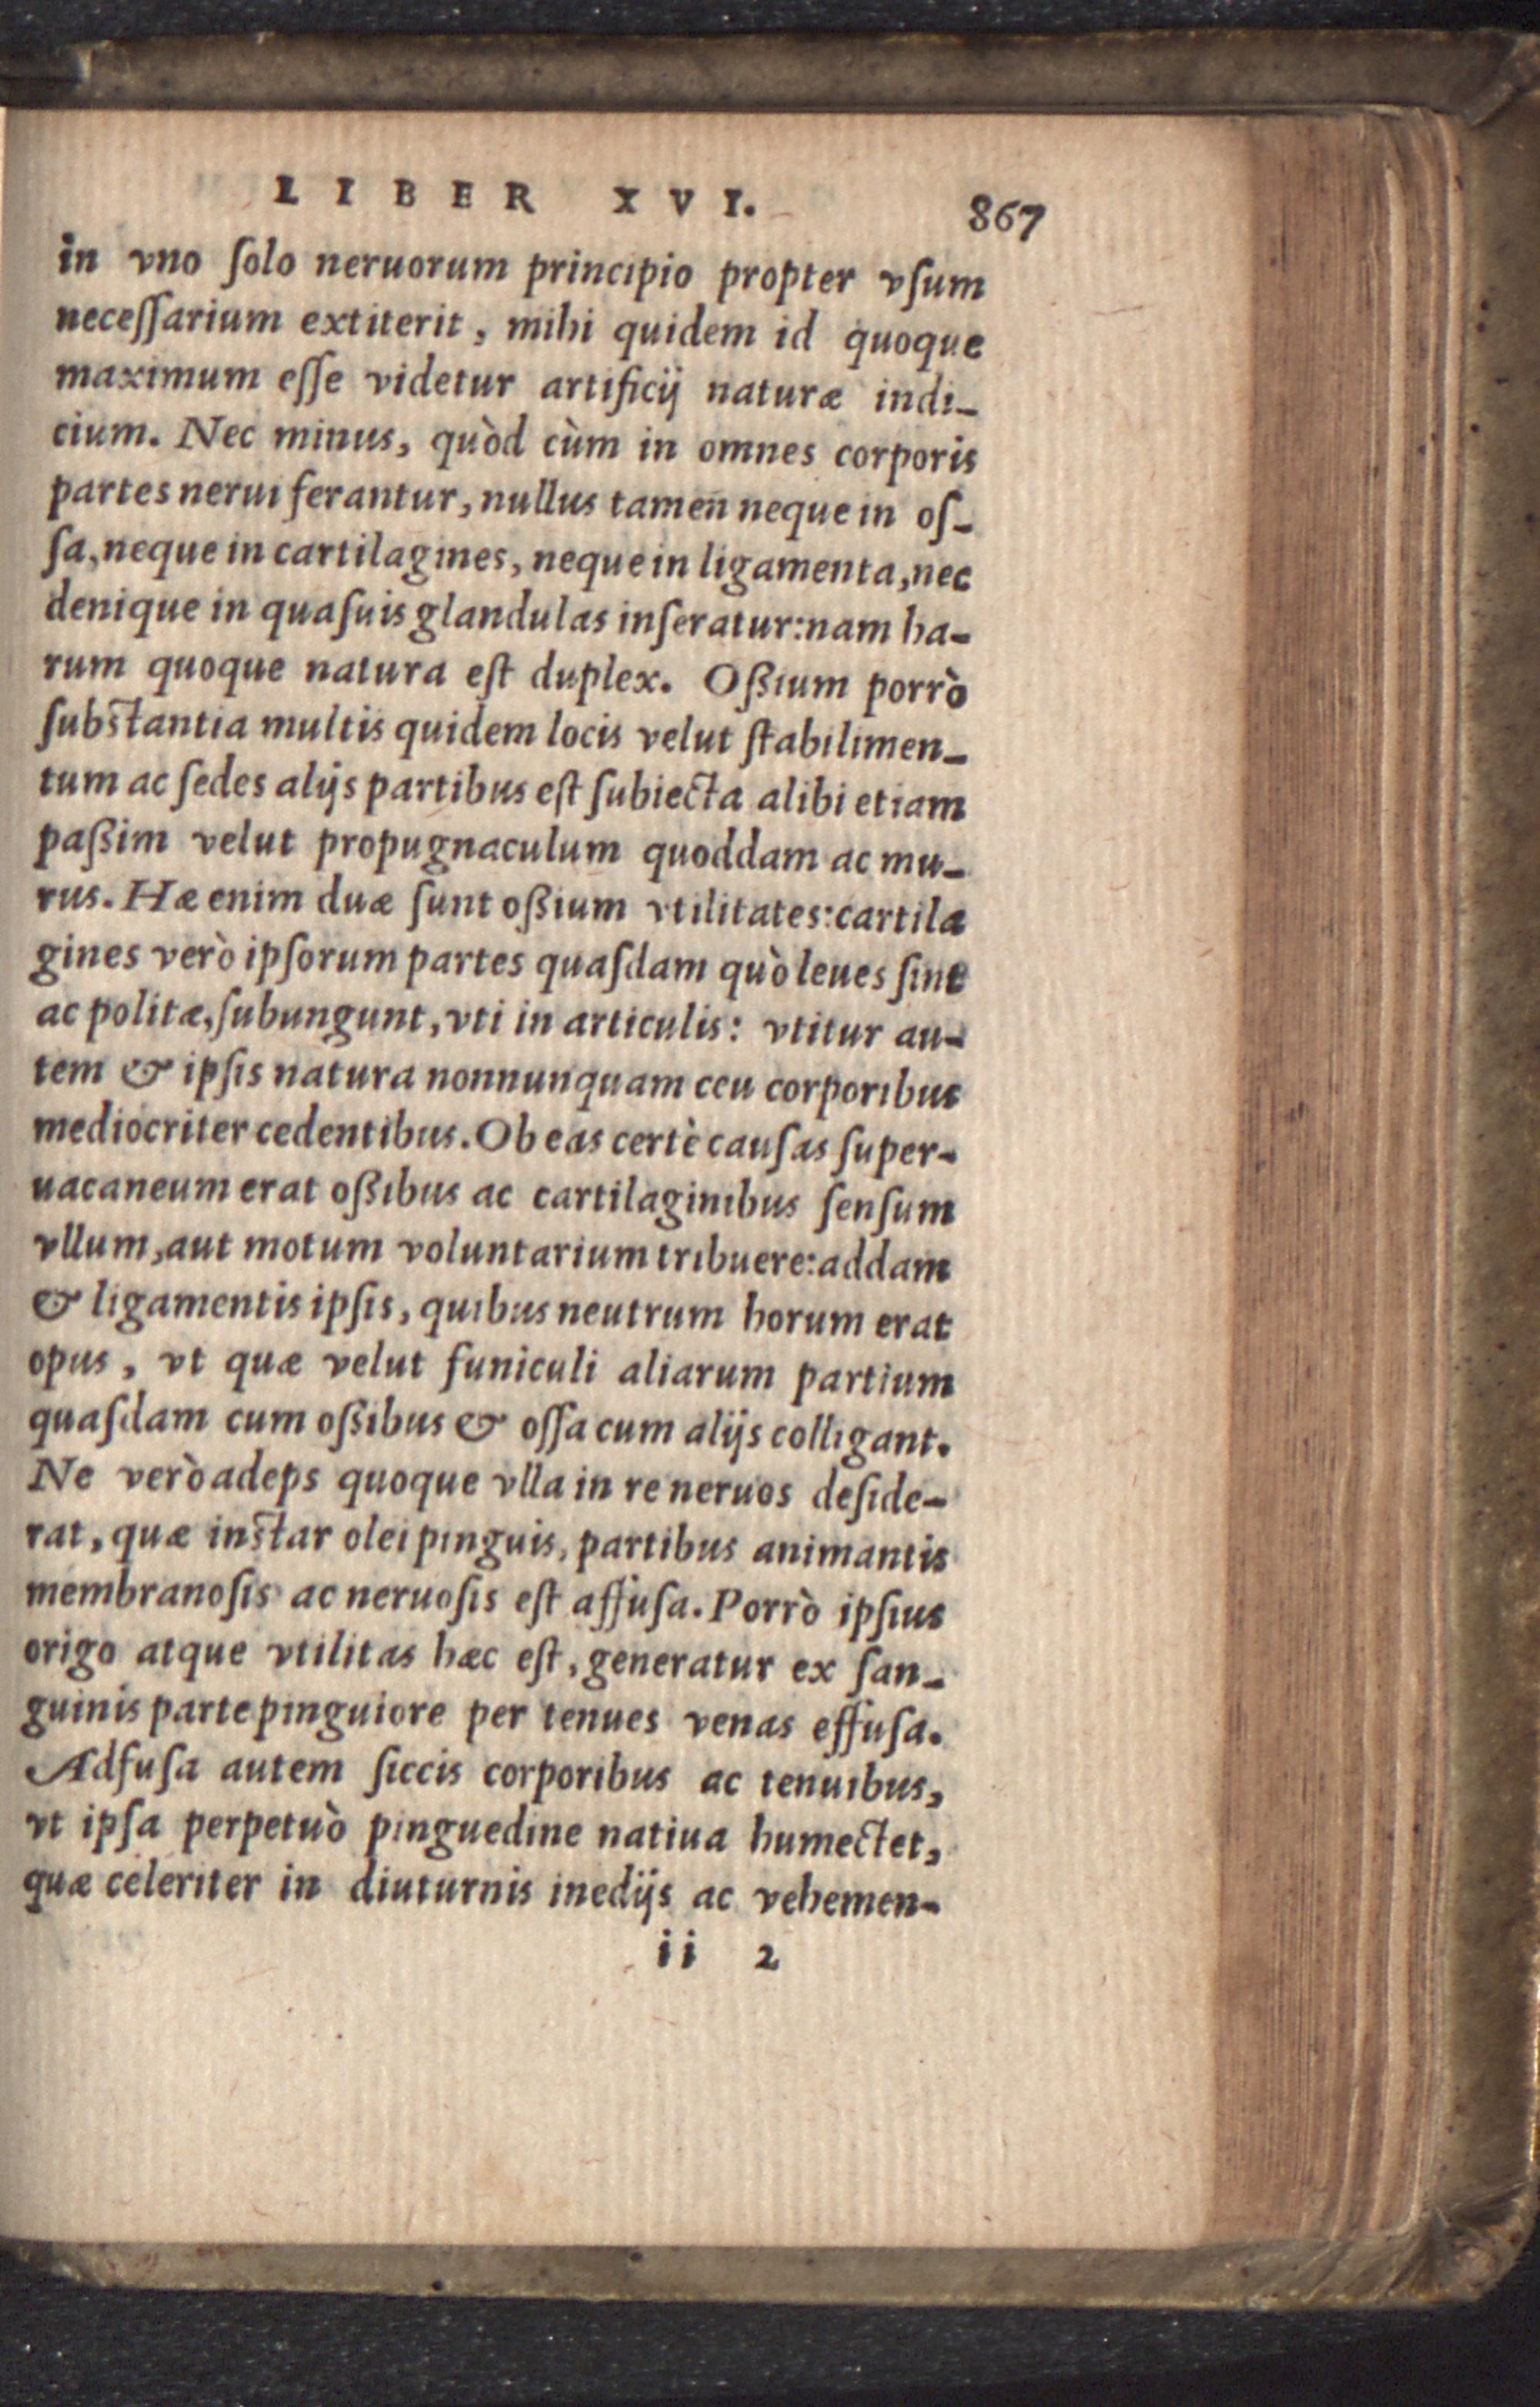 LIBER XVI. 867
in vno ſolo neruorum principio propter vſum
neceſſarium extiterit, mihi quidem id quoque
maximum eſſe videtur artificij naturæ indi-
cium. Nec minus, quòd cùm in omnes corporis
partes nerui ferantur, nullus tamen neque in oſ-
ſa, neque in cartilagines, neque in ligamenta, nec
denique in quaſuis glandulas inſeratur: nam ha-
rum quoque natura eſt duplex. Oßium porrò
ſubſtantia multis quidem locis velut ſtabilimen-
tum ac ſedes alijs partibus eſt ſubiecta alibi etiam
paßim velut propugnaculum quoddam ac mu-
rus. Hæ enim duæ ſunt oßium vtilitates: cartila
gines verò ipſorum partes quaſdam quò leues ſint
ac politæ, ſubungunt, vti in articulis: vtitur au-
tem & ipſis natura nonnunquam ceu corporibus
mediocriter cedentibus. Ob eas certè cauſas ſuper-
uacaneum erat oßibus ac cartilaginibus ſenſum
vllum, aut motum voluntarium tribuere: addam
& ligamentis ipſis, quibus neutrum horum erat
opus, vt quæ velut funiculi aliarum partium
quaſdam cum oßibus & oſſa cum alijs colligant.
Ne verò adeps quoque vlla in re neruos deſide-
rat, quæ inſtar olei pinguis, partibus animantis
membranoſis ac neruoſis eſt affuſa. Porrò ipſius
origo atque vtilitas hæc eſt, generatur ex ſan-
guinis parte pinguiore per tenues venas effuſa.
Adfuſa autem ſiccis corporibus ac tenuibus,
vt ipſa perpetuò pinguedine natiua humectet,
quæ celeriter in diuturnis inedijs ac vehemen-
ii 2